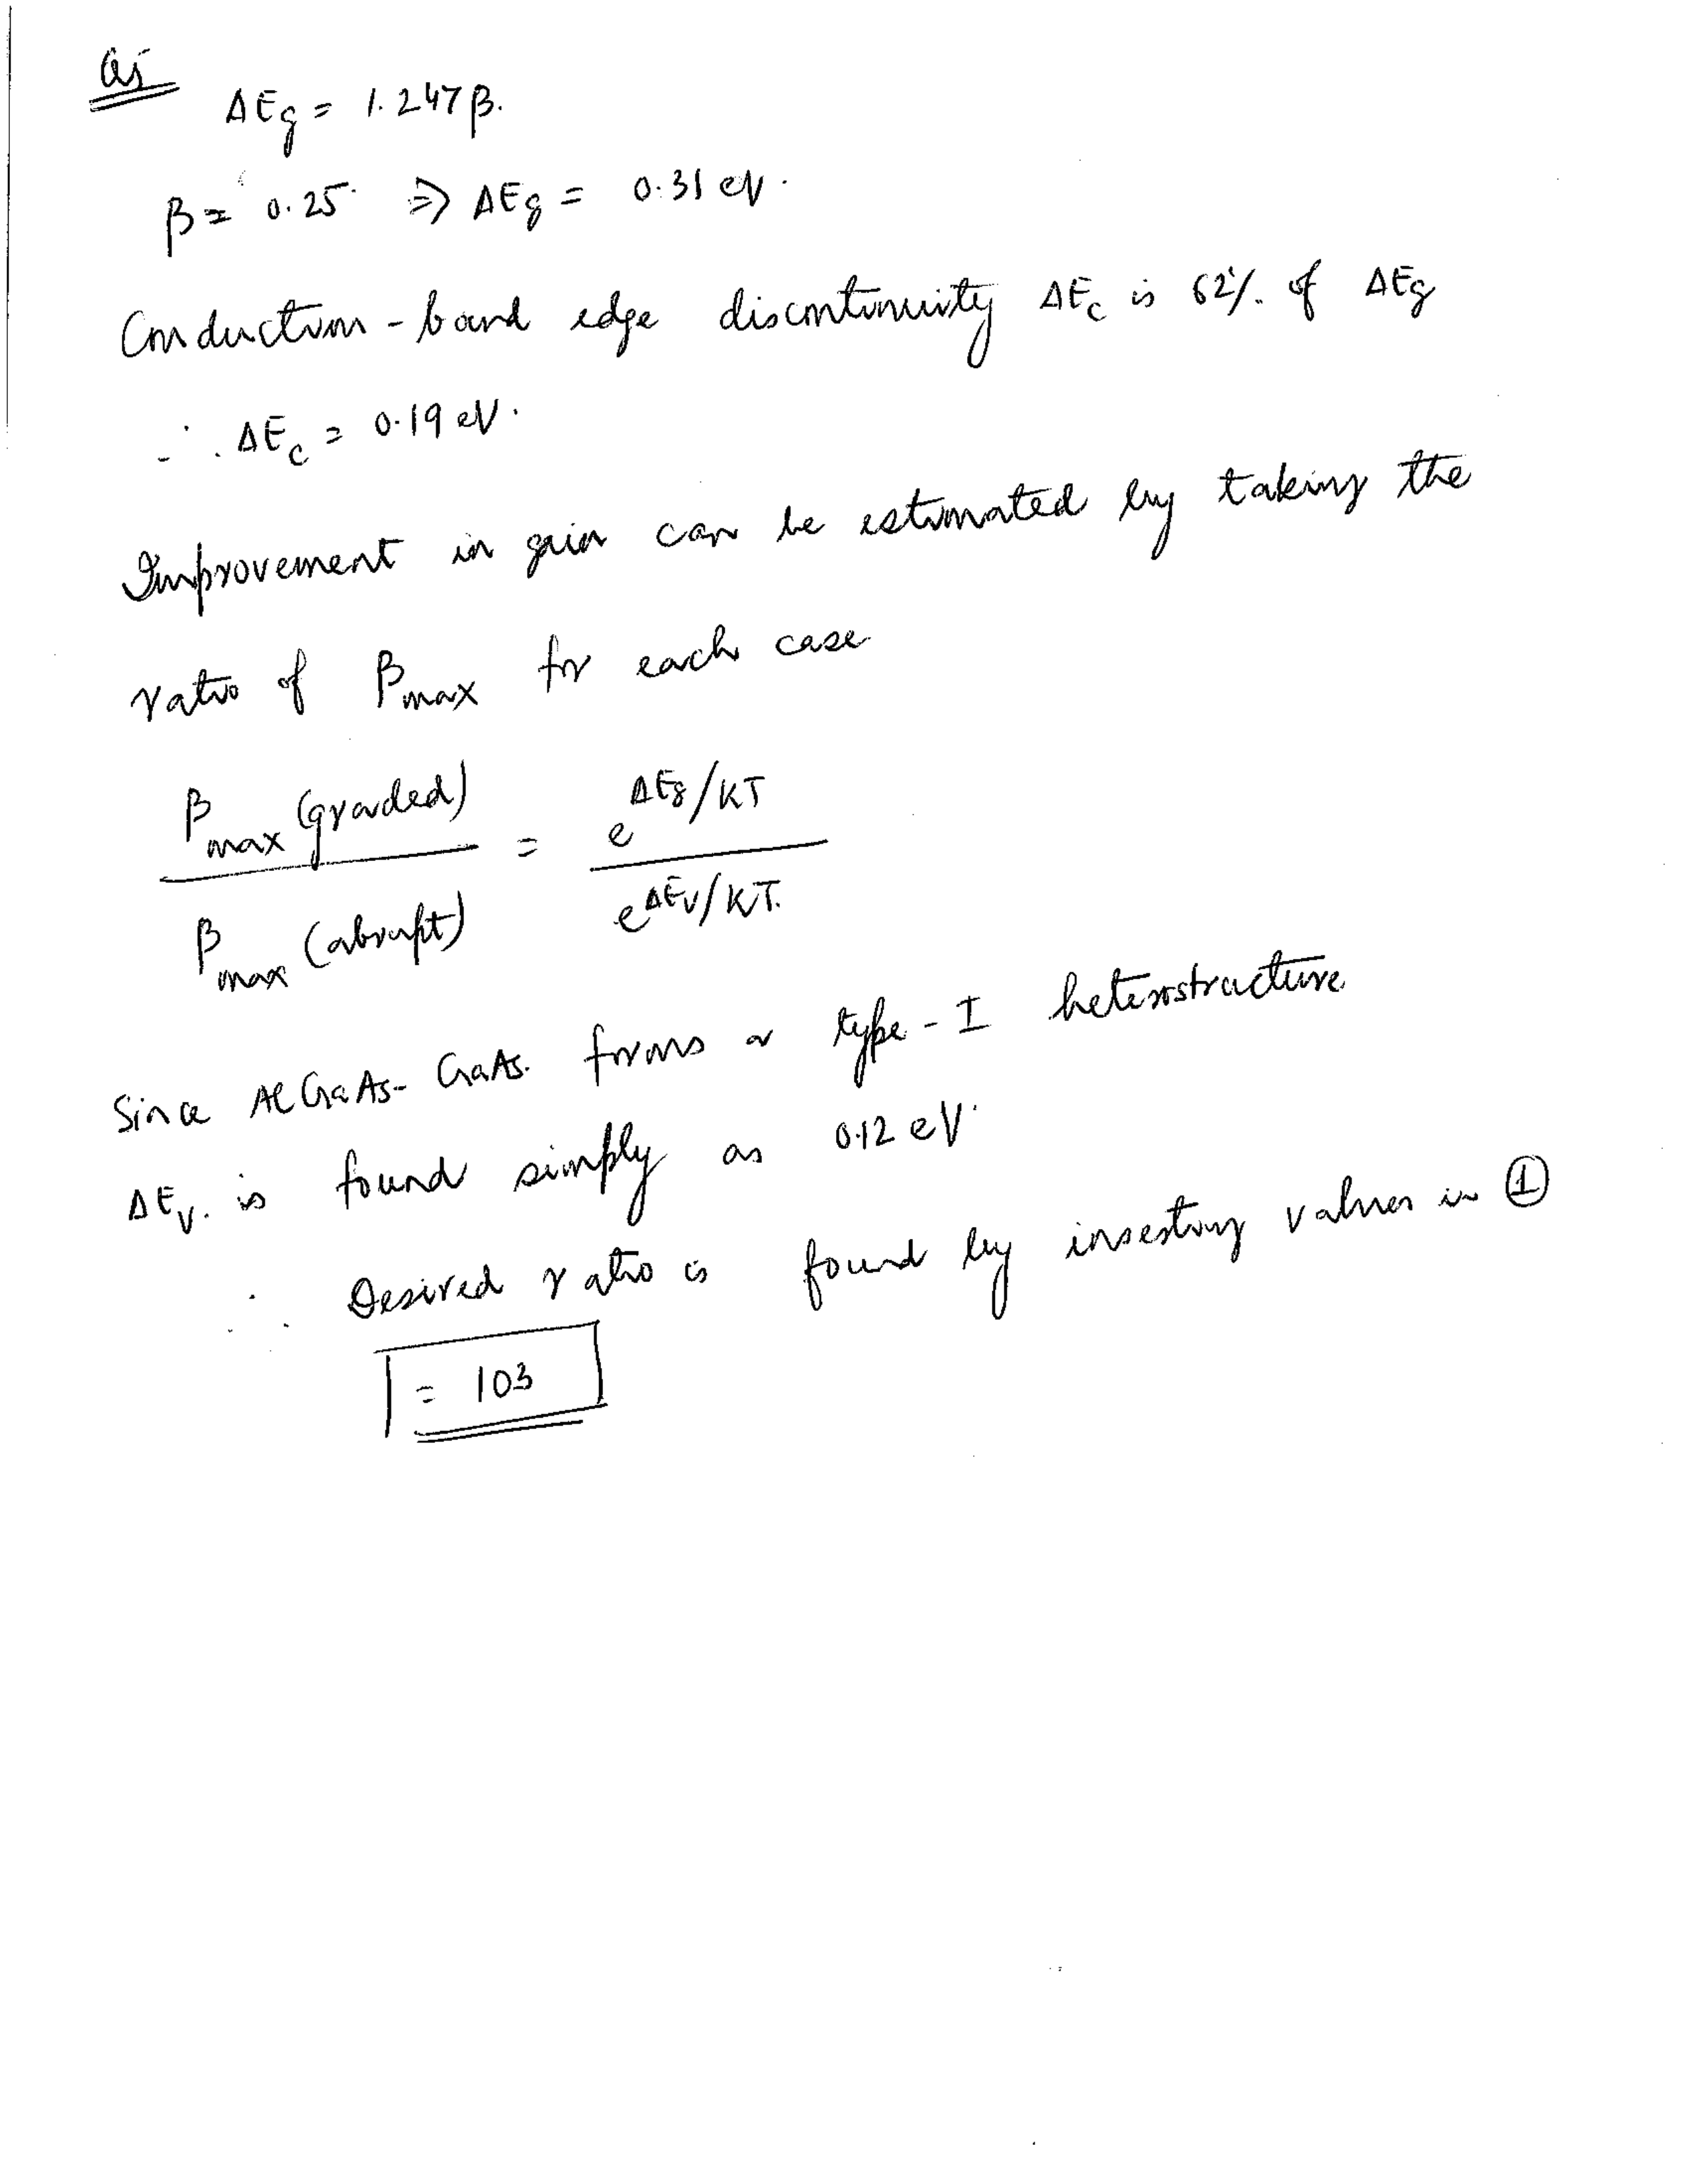 Q5
ΔEg = 1.247β.
β = 0.25 ⇒ ΔEg = 0.31 eV.
Conduction-band edge discontinuity ΔEc is 62% of ΔEg
∴ ΔEc = 0.19 eV.
Improvement in gain can be estimated by taking the
ratio of βmax for each case
βmax (graded) / βmax (abrupt) = e^ΔEg/KT / e^ΔEv/KT.
Since AlGaAs-GaAs. forms a type-I heterostructure
ΔEv. is found simply as 0.12 eV.
∴ Desired ratio is found by inserting values in ①
= 103